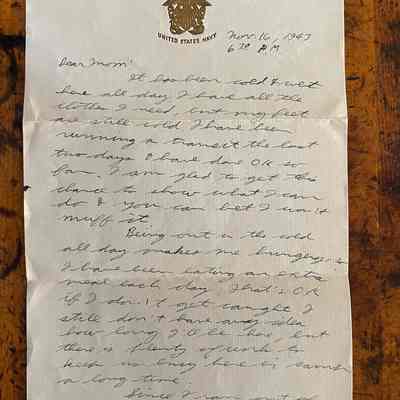 UNITED STATES NAVY
Nov. 16, 1943
6:30 P.M.
Dear Mom:
It has been cold & wet
here all day I have all the
clothes I need but my feet
are still cold I have been
running a transit the last
two days & have done OK so
far. I am glad to get this
chance to show what I can
do & you can bet I won't
muff it.
Being out in the cold
all day makes me hungry
I have been eating an extra
meal each day. That's O.K.
if I don't get caught I
still don't have any idea
how long I'll be here, but
there is plenty of work to
keep us busy here
a long time.
Since I ran out of